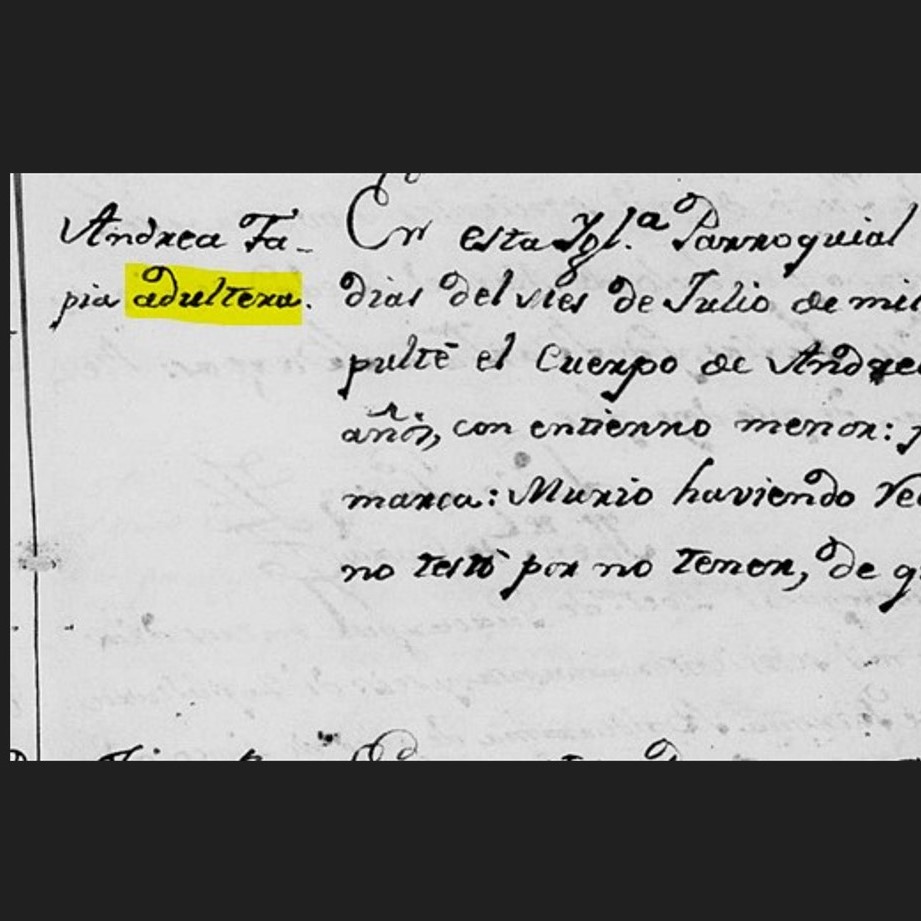 Andrea Ta-
pia adultera.
En esta Ygl.ª Parroquial
dias del mes de Julio de mil
pulté el Cuerpo de Andrea
años, con entierro menor:
marca: Murio haviendo Re
no testó por no tener, de q